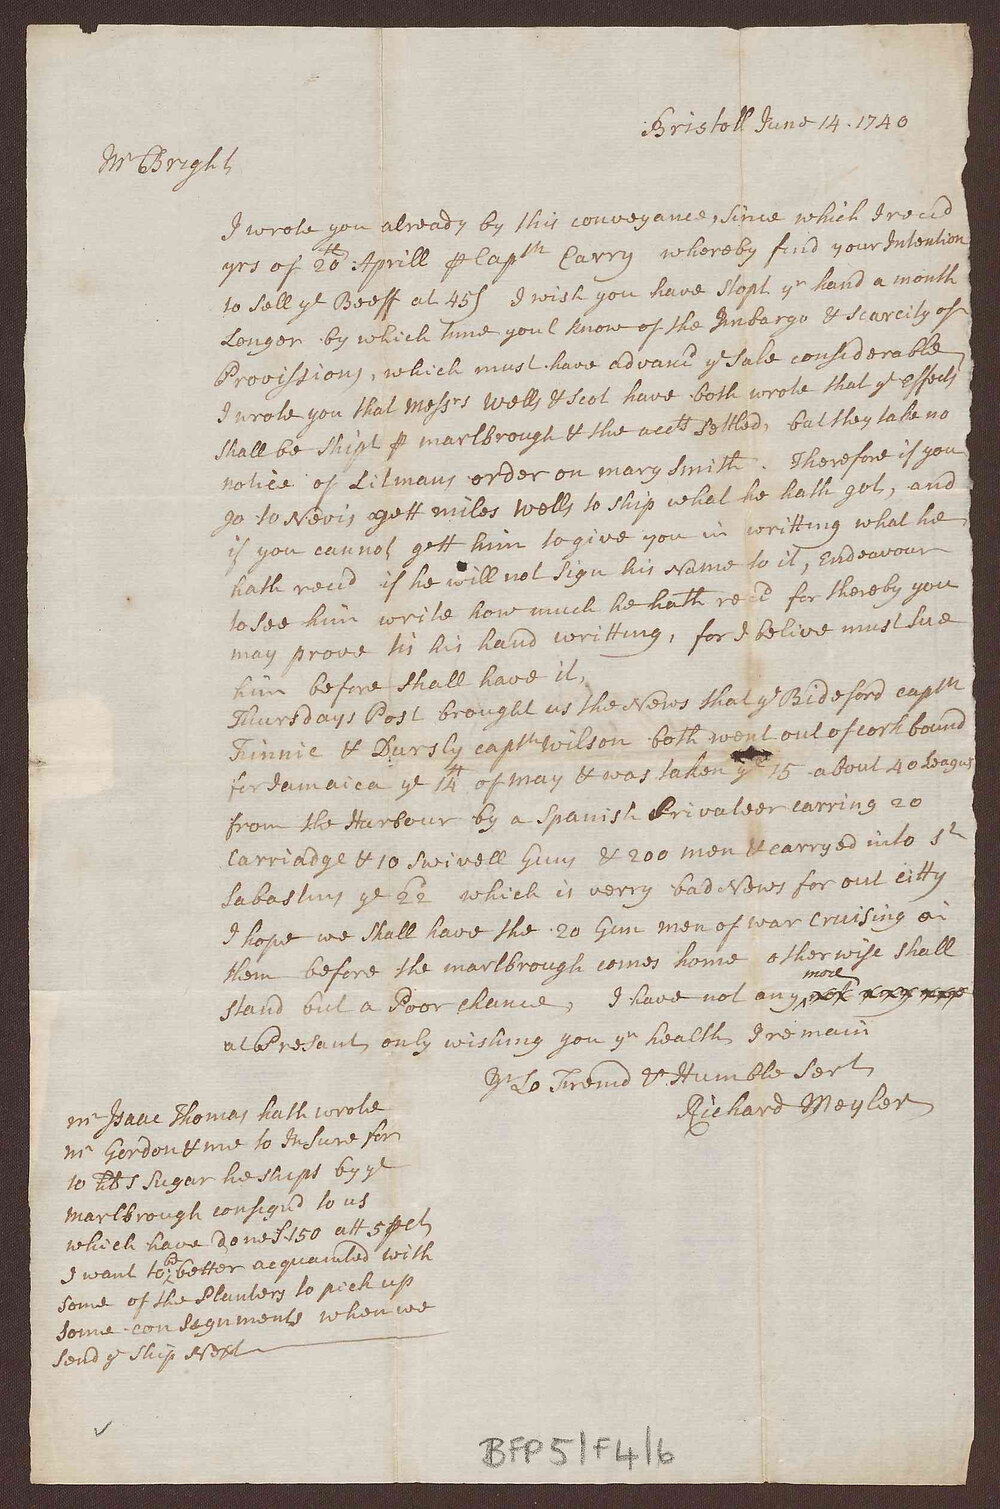 Bristoll June 14. 1740
Mr Bright
I wrote you already by this conveyance, Since which I recd
yrs of 20th Aprill ⅌ Captn Carry whereby find your Intention
to Sell ye Beeff at 45s I wish you have Stopt yr hand a month
Longer by which time youl know of the Imbargo & Scarcity of
Provissions, which must have advancd ye Sale considerable
I wrote you that Messrs Wells & Scot have both wrote that ye Effects
Shall be Shipt ⅌ marlbrough & the acctt Settled, but they take no
notice of Litmans order on mary Smith. Therefore if you
go to Nevis gett miles Wells to Ship what he hath got, and
if you cannot gett him to give you in writting what he
hath recd if he will not Sign his Name to it, Endeavour
to See him write how much he hath recd for thereby you
may prove his hand writting, for I belive must Sue
him before Shall have it,
Thursdays Post brought us the News that ye Bideford captn
Finnie & Dursly captn Wilson both went out of cork bound
for Jamaica ye 14th of may & was taken ye 15 about 40 Leagus
from the Harbour by a Spanish Privateer carring 20
Carriadge & 10 Swivell Guns & 200 men & carryed into St
Sabastins ye 22 which is verry bad News for out citty
I hope we Shall have the 20 Gun men of war cruising on
them before the marlbrough comes home otherwise Shall
Stand but a Poor chance, I have not any more
at Presant only wishing you yr health I remain
Yr Lo Freind & Humble Sert
Richard Meyler
mr Isaac Thomas hath wrote
mr Gordon & me to Insure for
10 hhs Sugar he Ships by ye
Marlbrough consignd to us
which have done £150 att 5 ⅌ Ct
I want to be better acquainted with
Some of the Planters to pick up
Some consignments when we
Send ye Ship Next
BFP 5/F4/6